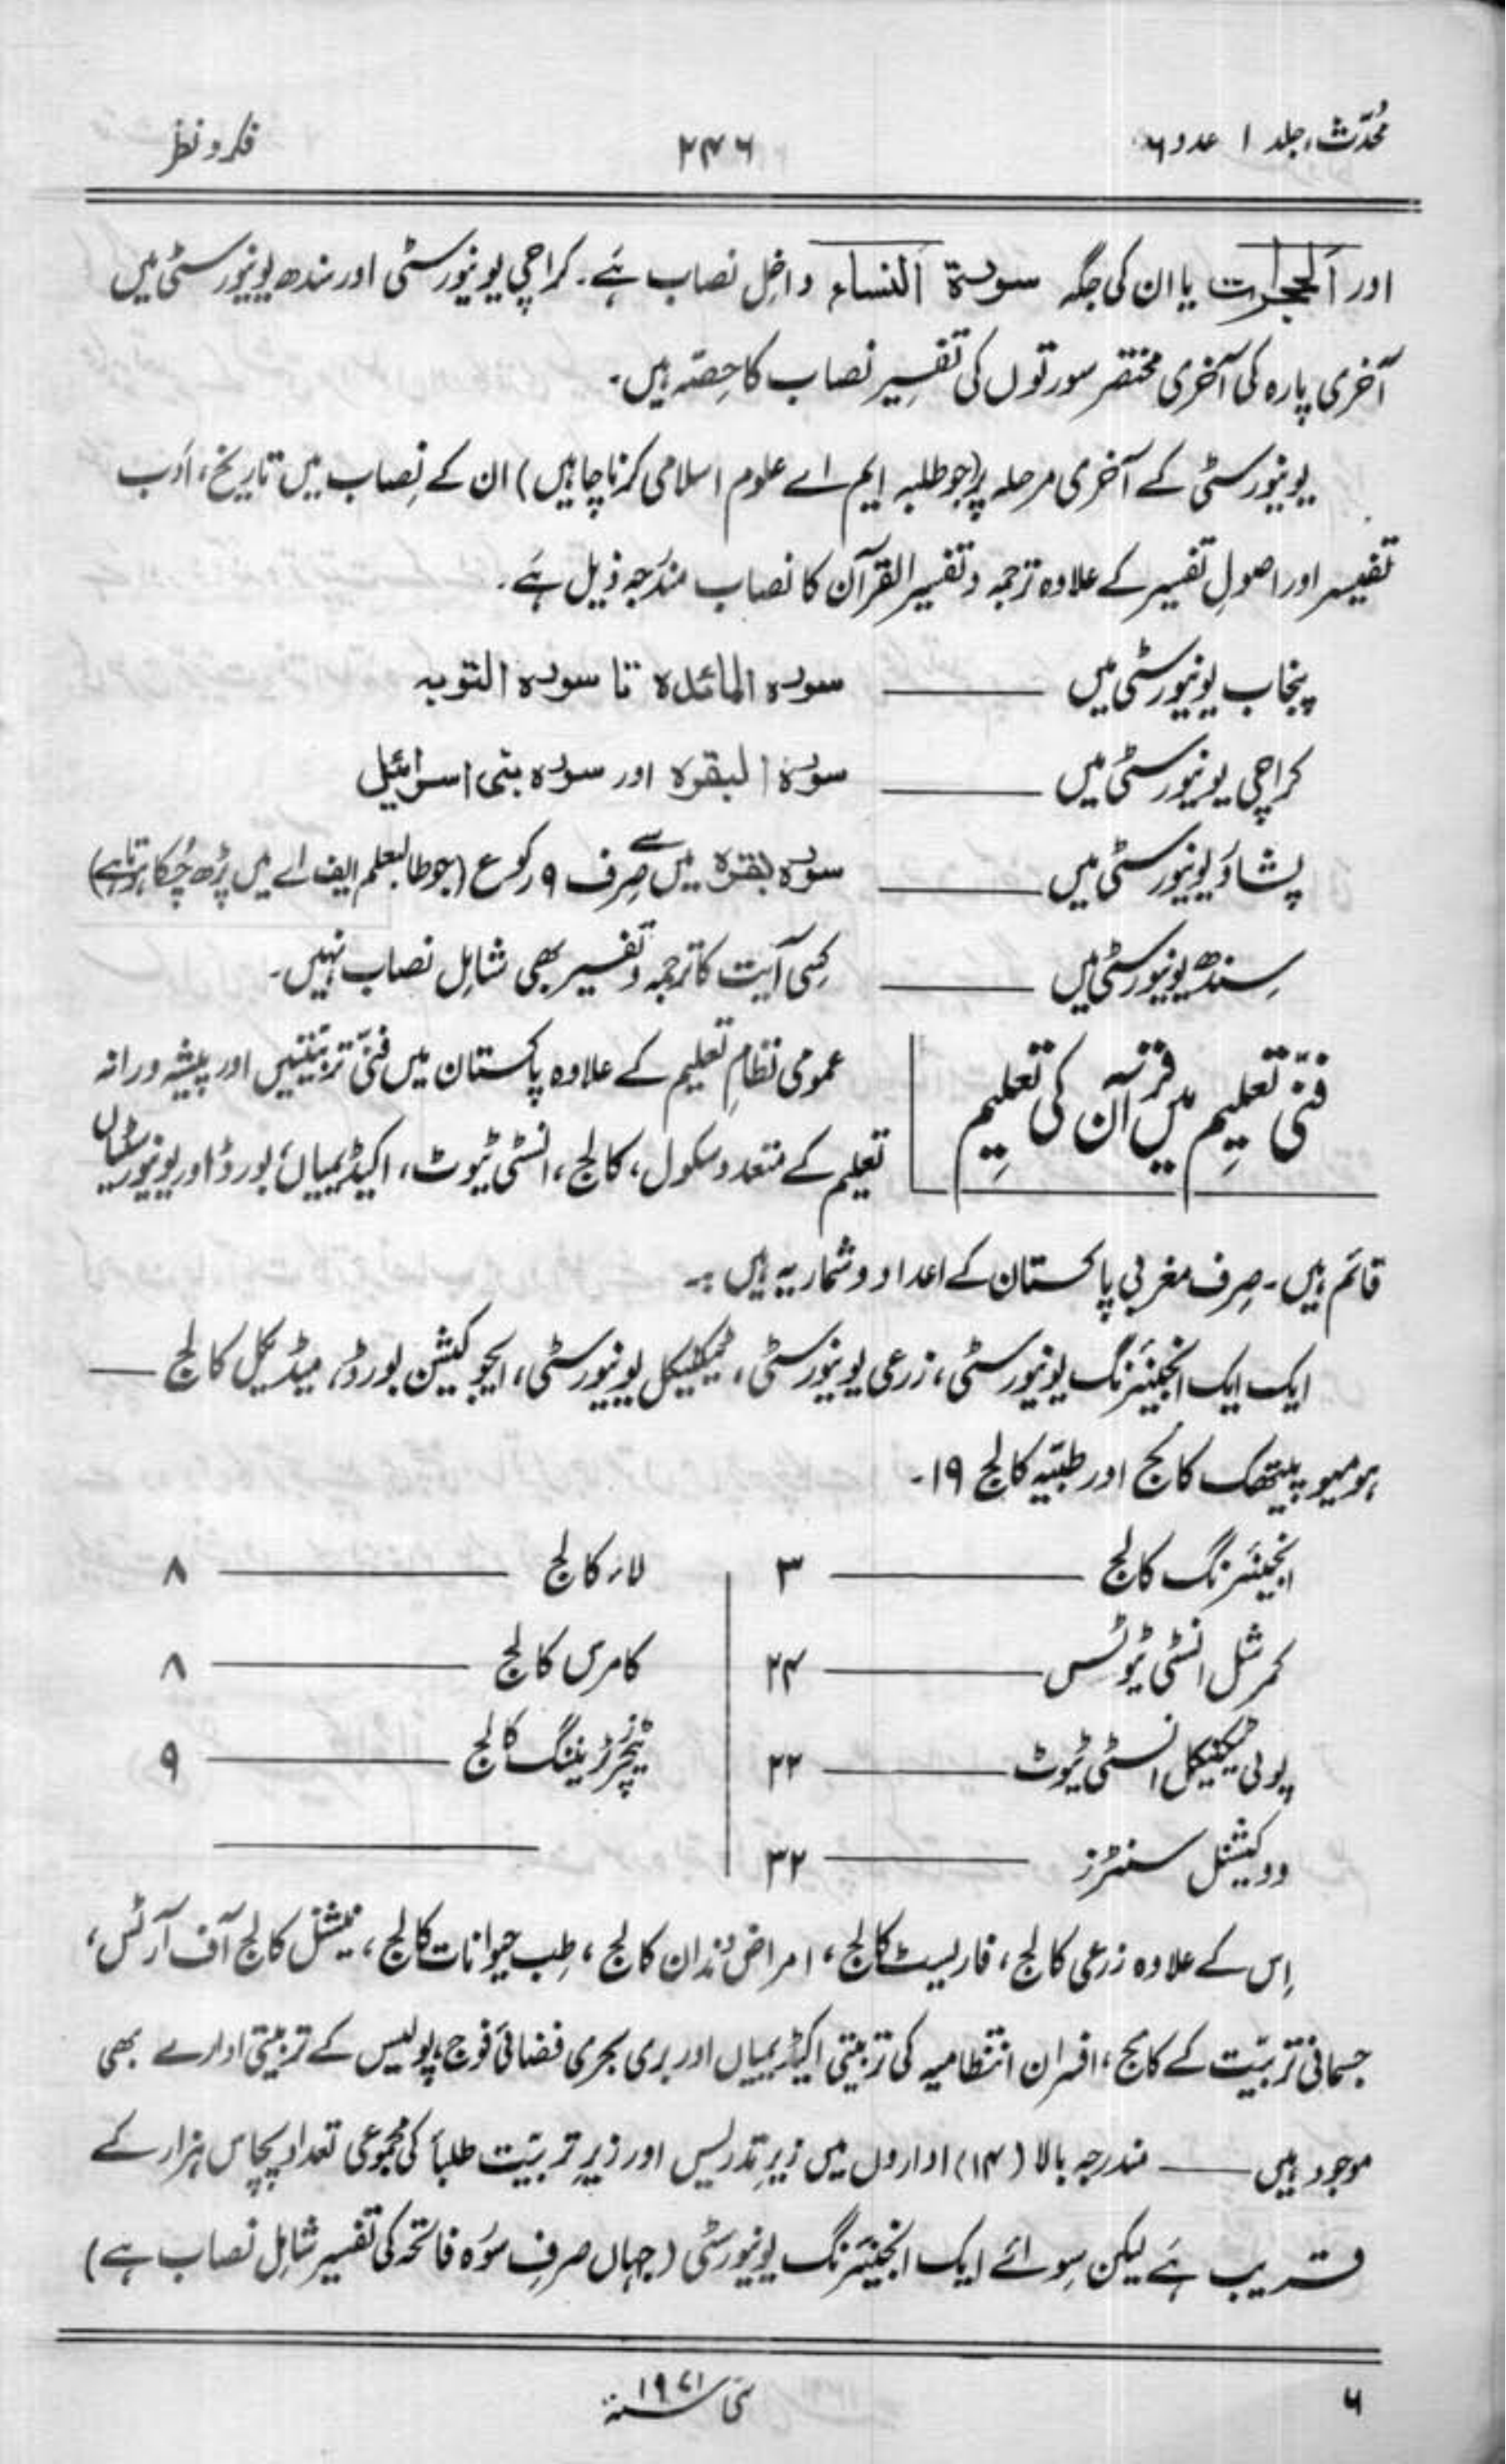 محدّث، جلد ۱ عدد ۶ ۲۴۶ فکر و نظر
اور اَلحجرات یا ان کی جگہ سورۃ اَلنساء داخِل نصاب ہَے۔ کراچی یونیورسٹی اور سندھ یونیورسٹی میں
آخری پارہ کی آخری مختصر سورتوں کی تفسِیر نصاب کا حِصّہ ہیں۔
یونیورسٹی کے آخری مرحلہ پر (جو طلبہ ایم اے علوم اسلامی کرنا چاہیں) ان کے نِصاب میں تاریخ، ادَب
تفیسر اور اصولِ تفسیر کے علاوہ ترجمہ و تفسیر القرآن کا نصاب مندَرجہ ذیل ہَے۔
پنجاب یونیورسٹی میں ——— سورہ المائدہ تا سورہ التوبہ
کراچی یونیورسٹی میں ——— سورۃ البقرہ اور سورہ بنی اسرائیل
پشاوَر یونیورسٹی میں ——— سورہ بقرہ میں سے صِرف ۹ رکوع (جو طالبعلم ایف اے میں پڑھ چُکا ہوتا ہے)
سِندھ یونیورسٹی میں ——— کِسی آیت کا ترجمہ و تفسیر بھی شامِل نصاب نہیں۔
فنّی تعلِیم میں قرآن کی تعلِیم
عمومی نظامِ تعلیم کے علاوہ پاکستان میں فنّی تربیّتیں اور پیشہ ورانہ
تعلیم کے متعدد سکول، کالج، انسٹی ٹیوٹ، اکیڈیمیاں بورڈ اور یونیورسٹیاں
قائم ہیں۔ صِرف مغربی پاکستان کے اعداد و شمار یہ ہیں :۔
ایک ایک انجنیئرنگ یونیورسٹی، زرعی یونیورسٹی، ٹیکنیکل یونیورسٹی، ایجوکیشن بورڈ، میڈیکل کالج ———
ہومیو پیتھک کالج اور طبّیہ کالج ۱۹۔
انجینئرنگ کالج ——— ۳ لاء کالج ——— ۸
کمرشل انسٹی ٹیوٹس ——— ۲۴ کامرس کالج ——— ۸
پولی ٹیکنیکل انسٹی ٹیوٹ ——— ۲۲ ٹیچرز ٹریننگ کالج ——— ۹
ووکیشنل سنٹرز ——— ۳۲ ———
اِس کے علاوہ زرعی کالج، فاریسٹ کالج، امراض دنداں کالج، طِب حیوانات کالج، نیشنل کالج آف آرٹس،
جسمانی تربیّت کے کالج، افسران انتظامیہ کی تربیتی اکیڈیمیاں اور بری بحری فضائی فوج، پولیس کے تربیتی ادارے بھی
موجود ہیں ——— مندرجہ بالا (۱۴) اداروں میں زیرِ تدریس اور زیرِ تربیّت طلبأ کی مجموعی تعداد پچاس ہزار کے
قریب ہَے لیکن سِوائے ایک انجنیئرنگ یونیورسٹی (جہاں صرفِ سوُرہ فاتحہ کی تفسیر شامِل نصاب ہے)
۶ مئی ۱۹۷۱ سنہ